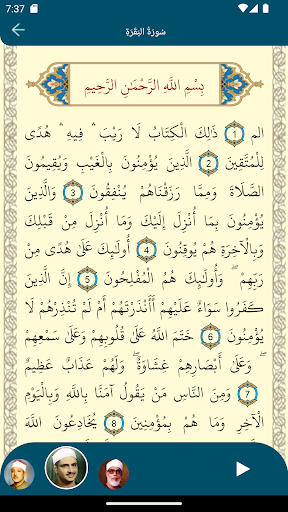 7:37
سُورَةُ البَقَرَةِ
بِسْمِ اللَّهِ الرَّحْمَٰنِ الرَّحِيمِ
الم 1 ذَٰلِكَ الْكِتَابُ لَا رَيْبَ ۛ فِيهِ ۛ هُدًى
لِّلْمُتَّقِينَ 2 الَّذِينَ يُؤْمِنُونَ بِالْغَيْبِ وَيُقِيمُونَ
الصَّلَاةَ وَمِمَّا رَزَقْنَاهُمْ يُنفِقُونَ 3 وَالَّذِينَ
يُؤْمِنُونَ بِمَا أُنزِلَ إِلَيْكَ وَمَا أُنزِلَ مِن قَبْلِكَ
وَبِالْآخِرَةِ هُمْ يُوقِنُونَ 4 أُولَٰئِكَ عَلَىٰ هُدًى مِّن
رَّبِّهِمْ ۖ وَأُولَٰئِكَ هُمُ الْمُفْلِحُونَ 5 إِنَّ الَّذِينَ
كَفَرُوا سَوَاءٌ عَلَيْهِمْ أَأَنذَرْتَهُمْ أَمْ لَمْ تُنذِرْهُمْ لَا
يُؤْمِنُونَ 6 خَتَمَ اللَّهُ عَلَىٰ قُلُوبِهِمْ وَعَلَىٰ سَمْعِهِمْ
ۖ وَعَلَىٰ أَبْصَارِهِمْ غِشَاوَةٌ ۖ وَلَهُمْ عَذَابٌ عَظِيمٌ
7 وَمِنَ النَّاسِ مَن يَقُولُ آمَنَّا بِاللَّهِ وَبِالْيَوْمِ
الْآخِرِ وَمَا هُم بِمُؤْمِنِينَ 8 يُخَادِعُونَ اللَّهَ